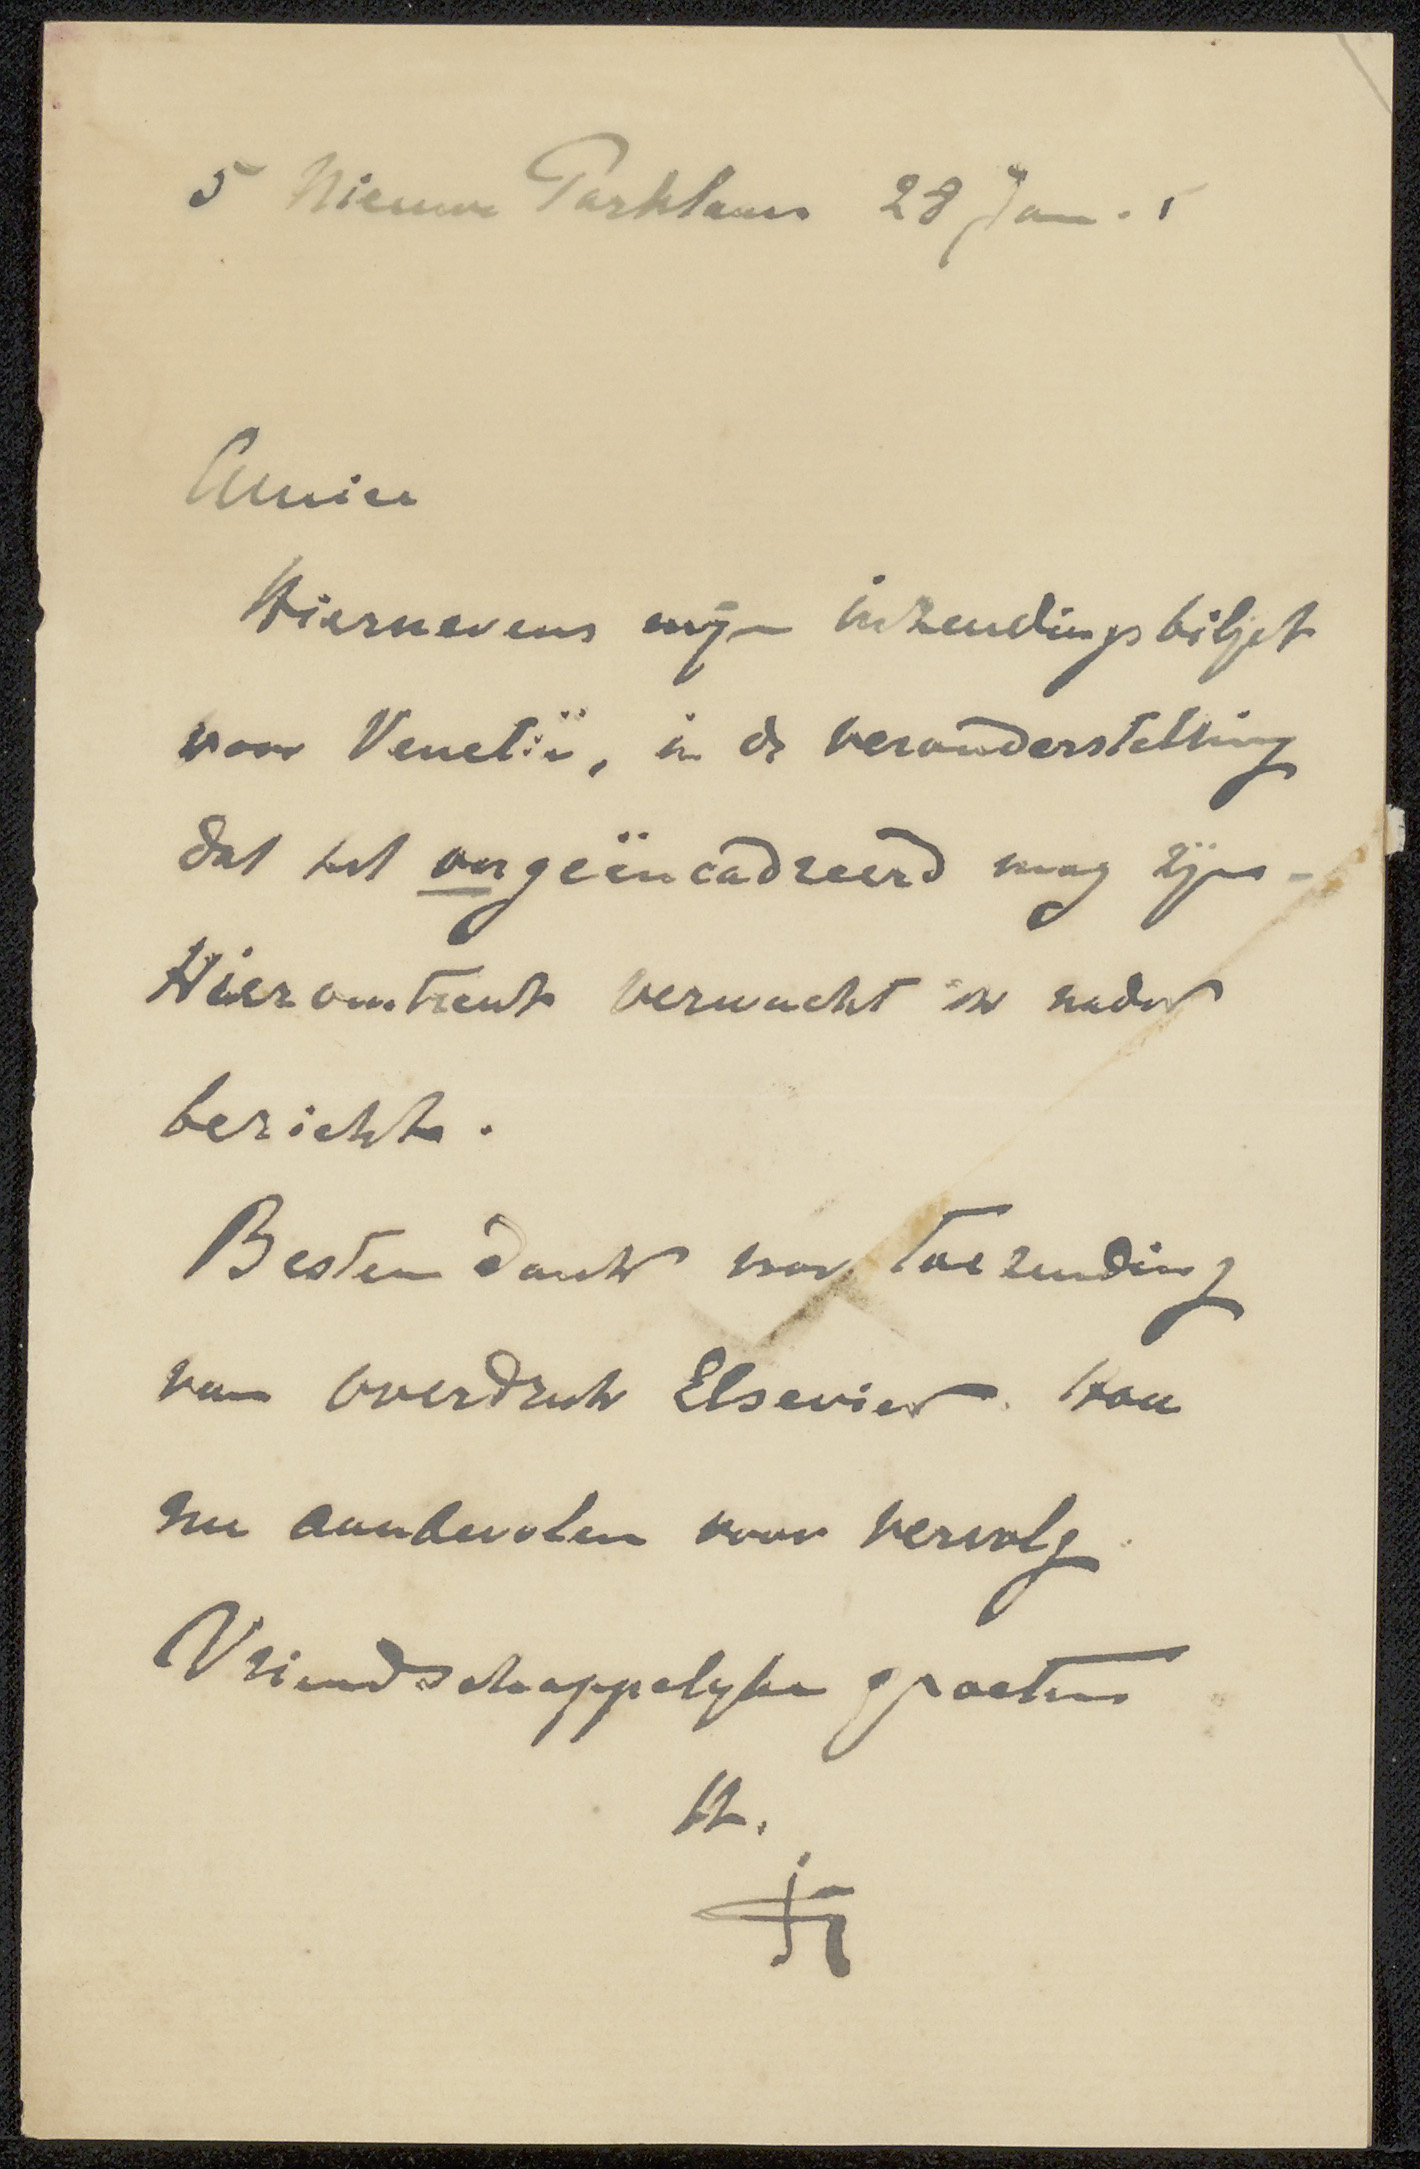 5 Nieuwe Parklaan 28 Jan. 5
Amice
Hiernevens mijn inzendingsbiljet
voor Venetië, in de veronderstelling
dat het ongeëncadreerd mag zijn -
Hieromtrent verwacht ik nader
bericht.
Besten dank voor toezending
van overdruk Elsevier. Hou
me aanbevolen voor vervolg.
Vriendschappelyke groeten
tt.